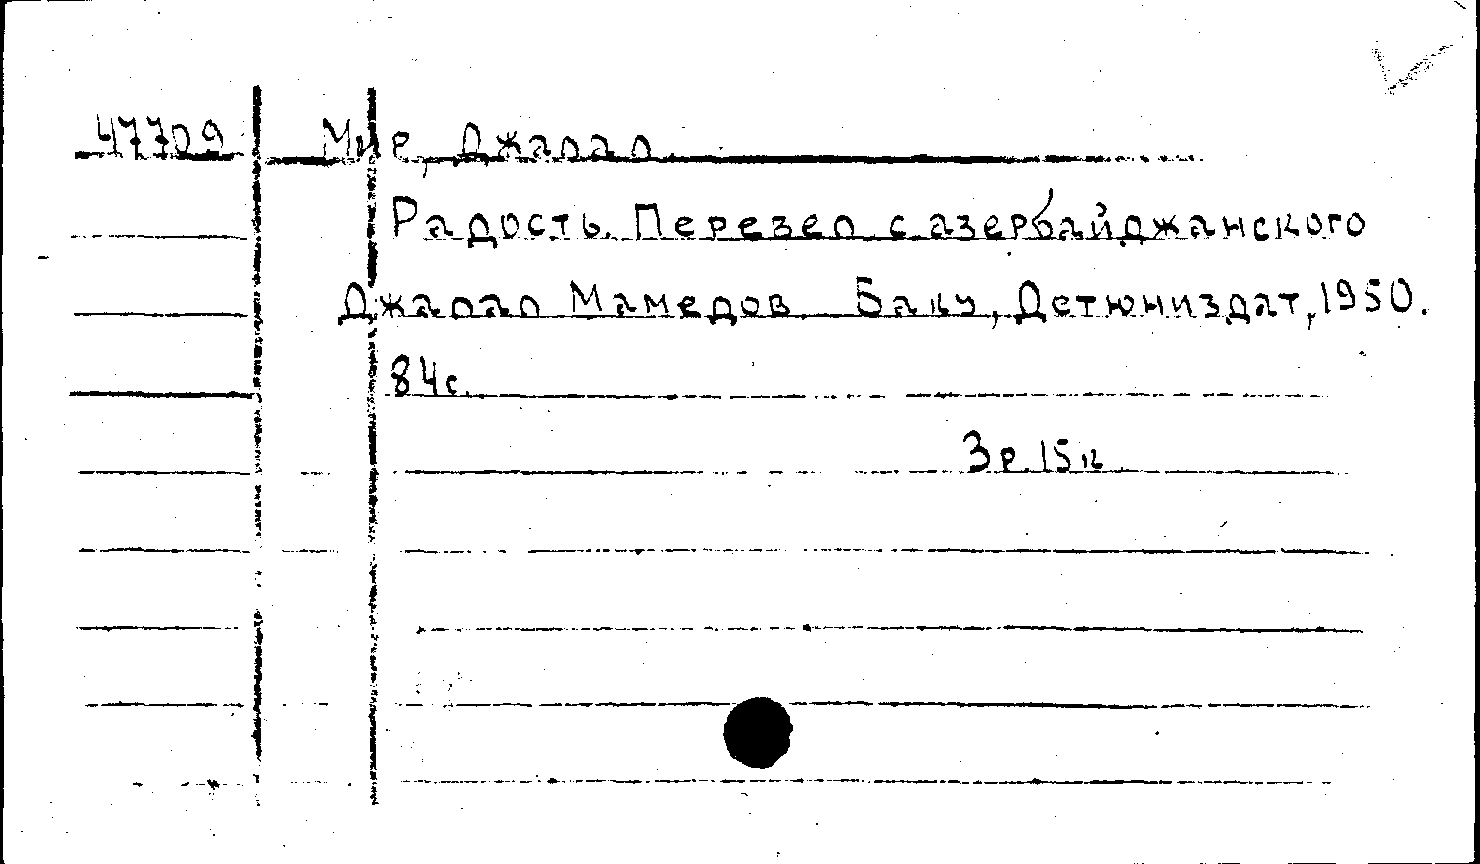 47709 Мир, Джалал.
Радость. Перевел с азербайджанского
Джалал Мамедов. Баку, Детюниздат, 1950.
84с.
3р. 15к.